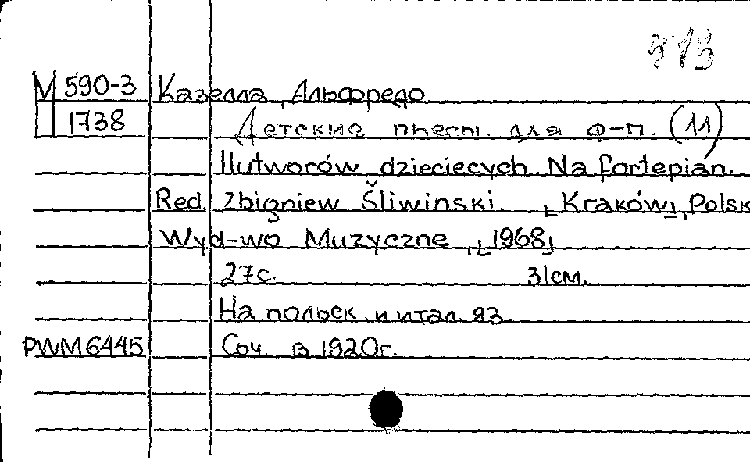 813
М 590-3 Казелла, Альфредо
1738 Детские пьесы для ф-п. (11)
11 utworów dzieciecych Na fortepian.
Red Zbigniew Śliwinski [Kraków], Polsk
Wyd-wo Muzyczne, [1968]
27с. 31см.
На польск и итал яз.
PWM 6445 Соч в 1920г.